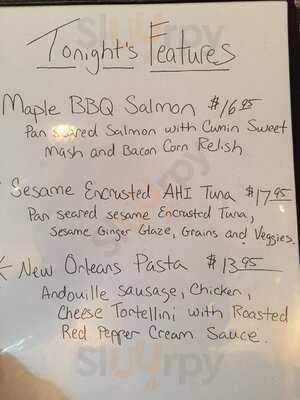 Tonight's Features
Maple BBQ Salmon $16.95
Pan seared Salmon with Cumin Sweet
Mash and Bacon Corn Relish
Sesame Encrusted AHI Tuna $17.95
Pan seared sesame Encrusted Tuna,
Sesame Ginger Glaze, Grains and Veggies.
New Orleans Pasta $13.95
Andouille sausage, Chicken,
Cheese Tortellini with Roasted
Red Pepper Cream Sauce.
sluurpy
sluurpy